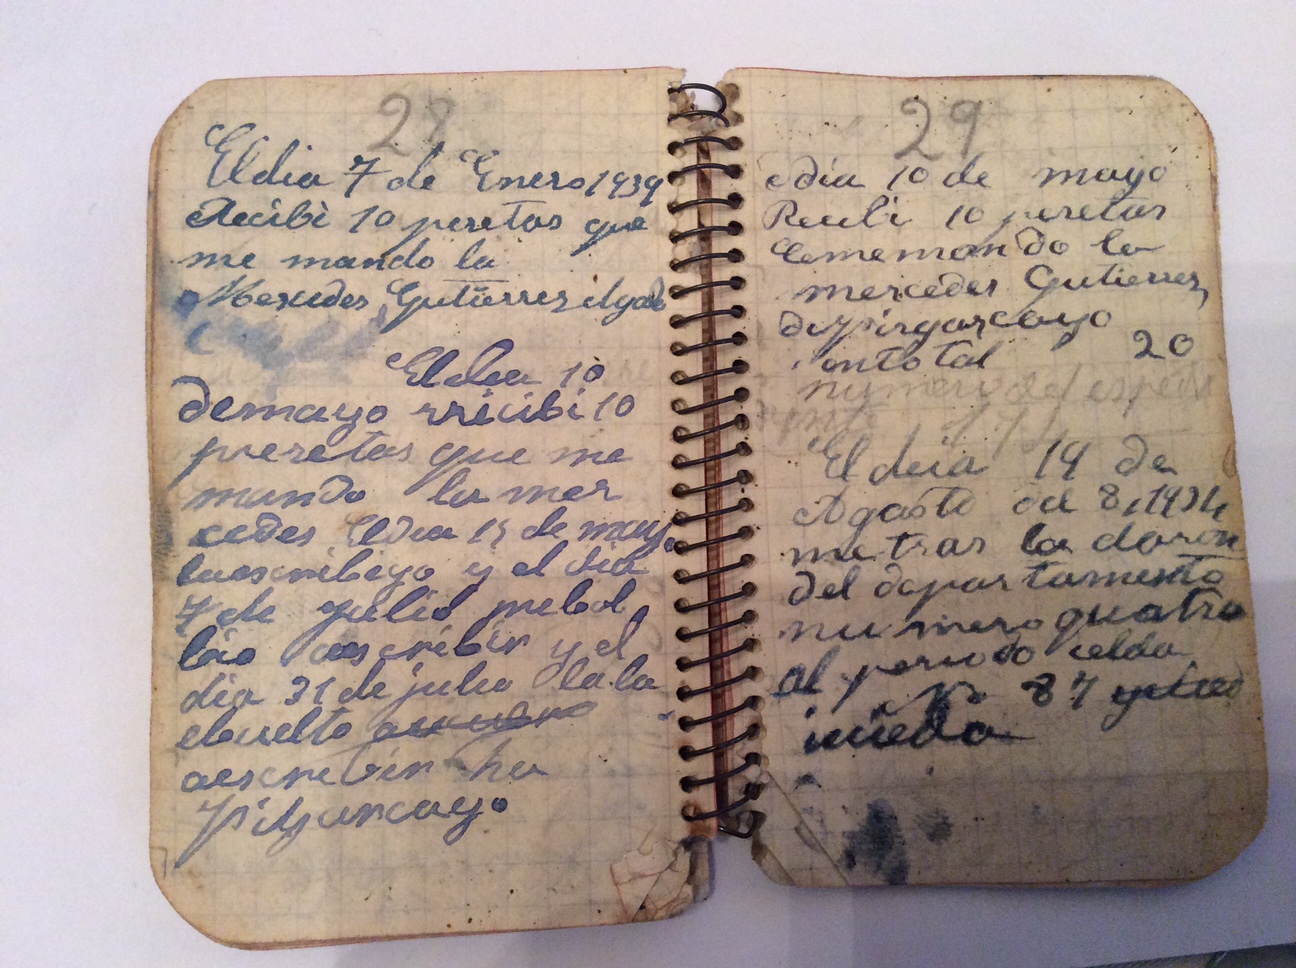 28
El dia 7 de Enero 1939
Recibi 10 peretas que
me mando la
Mercedes Gutierrez
El dia 10
demayo rricibi 10
peretas que me
mando la mer
cedes El dia 15 de mayo
laescribiyo y el dia
7 de julio mebol
bio aescribir y el
dia 31 de julio lala
ebuelto
aescribir ha
Pilgarcayo
29
dia 10 de mayo
Recibi 10 peretas
cememando la
mercedes Gutierrez
de pirgarcayo
ontotal 20
numero del espedi
ente
El deia 14 de
Agosto del
me tras la daron
del departamento
numero quatro
al periodo celda
87